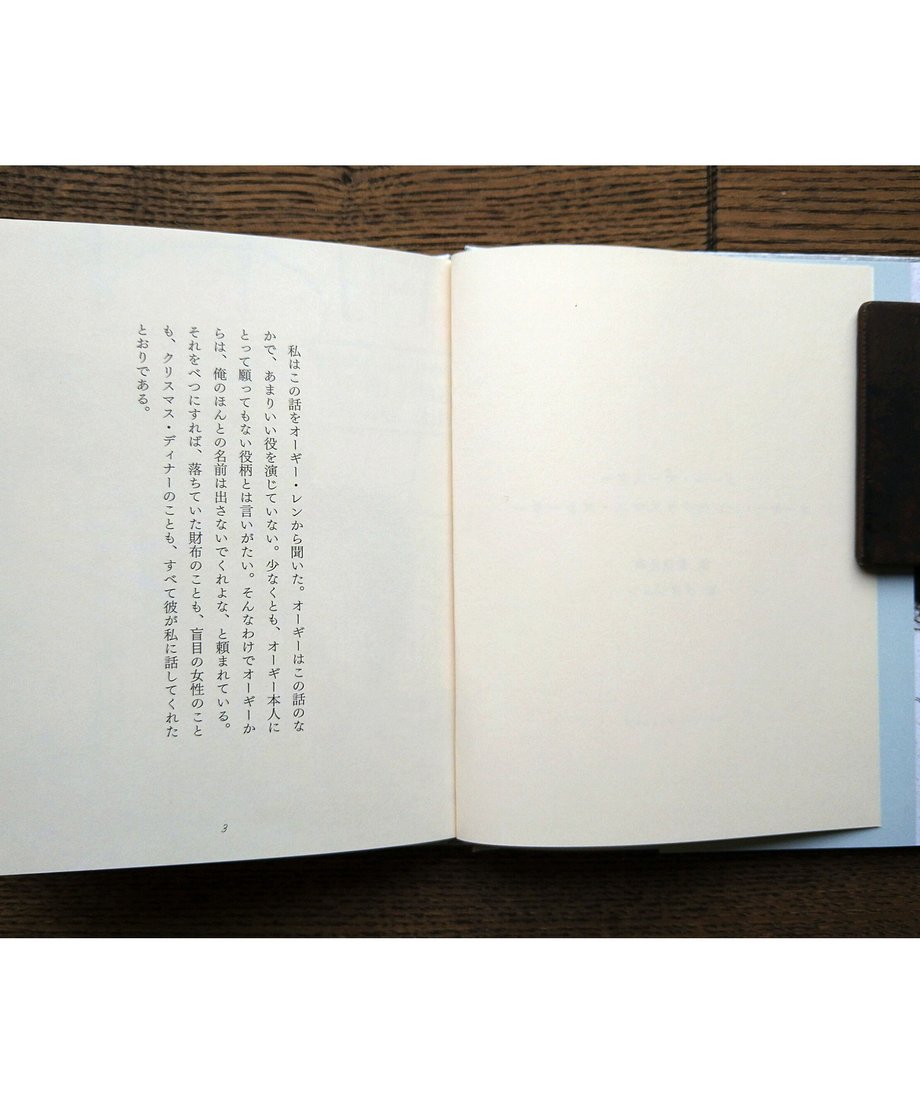 私はこの話をオーギー・レンから聞いた。オーギーはこの話のな
かで、あまりいい役を演じていない。少なくとも、オーギー本人に
とって願ってもない役柄とは言いがたい。そんなわけでオーギーか
らは、俺のほんとの名前は出さないでくれよな、と頼まれている。
それをべつにすれば、落ちていた財布のことも、盲目の女性のこと
も、クリスマス・ディナーのことも、すべて彼が私に話してくれた
とおりである。
3